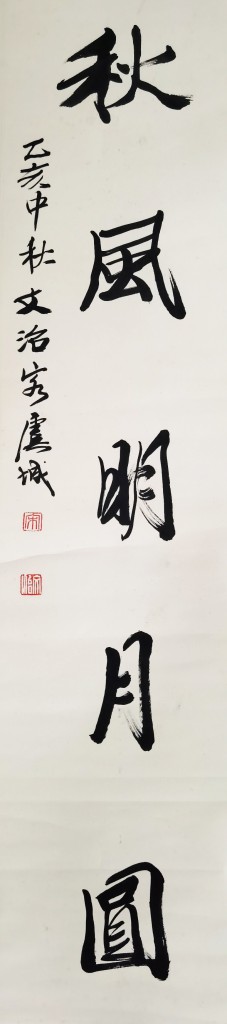 秋風明月圓
乙亥中秋文治客虞城